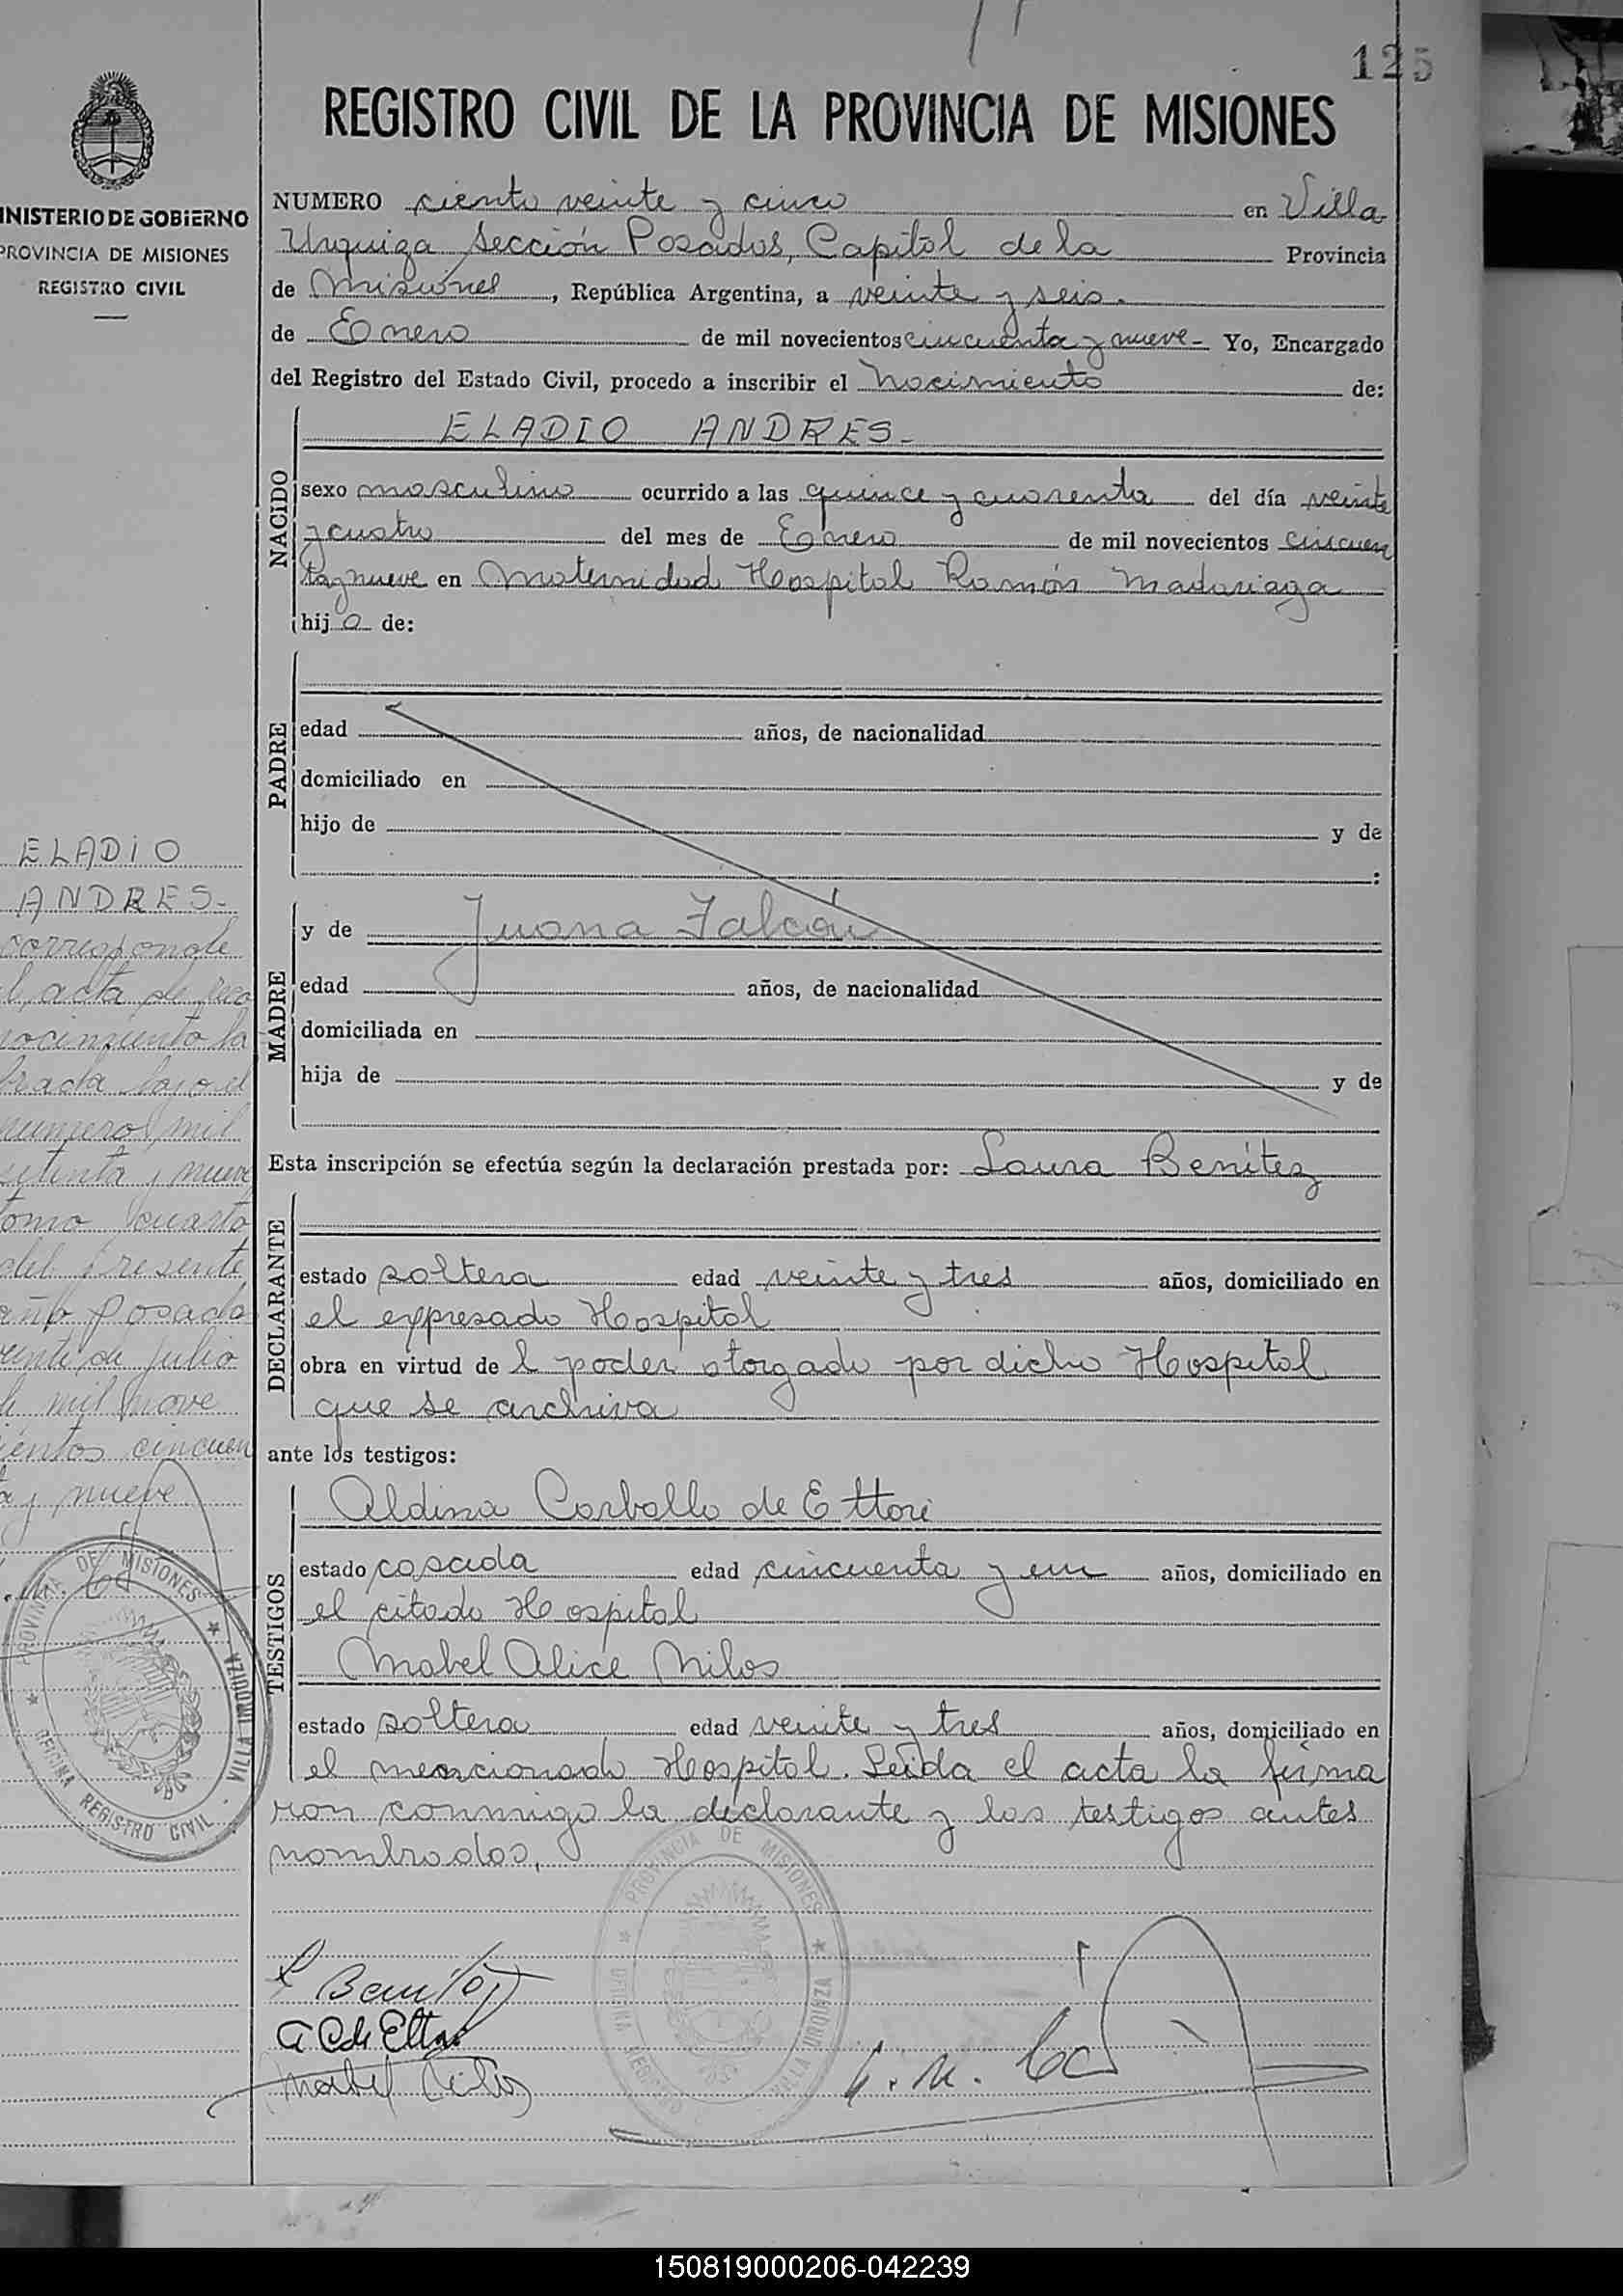 125
REGISTRO CIVIL DE LA PROVINCIA DE MISIONES
INISTERIO DE GOBIERNO
PROVINCIA DE MISIONES
REGISTRO CIVIL
NUMERO ciento veinte y cinco en Villa
Urquiza Sección Posadas, Capital de la Provincia
de Misiones, República Argentina, a veinte y seis.
de Enero de mil novecientos cincuenta y nueve - Yo, Encargado
del Registro del Estado Civil, procedo a inscribir el Nacimiento de:
NACIDO
ELADIO ANDRES-
sexo masculino ocurrido a las quince y cuarenta del día veinte
y cuatro del mes de Enero de mil novecientos cincuen
ta y nueve en Maternidad Hospital Ramón Madariaga
hijo de:
PADRE
edad años, de nacionalidad
domiciliado en
hijo de y de
:
MADRE
y de Juana Falcón
edad años, de nacionalidad
domiciliada en
hija de y de
Esta inscripción se efectúa según la declaración prestada por: Laura Benítez
DECLARANTE
estado soltera edad veinte y tres años, domiciliado en
el expresado Hospital
obra en virtud de l poder otorgado por dicho Hospital
que se archiva
ante los testigos:
TESTIGOS
Aldina Carballo de Ettori
estado casada edad cincuenta y un años, domiciliado en
el citado Hospital
Mabel Alice Milos
estado soltera edad veinte y tres años, domiciliado en
el mencionado Hospital. Leída el acta la firma
ron conmigo la declarante y los testigos antes
nombrados,
L Benítez
A C de Ettori
Mabel
PROVINCIA DE MISIONES
OFICINA REGISTRO VILLA URQUIZA
ELADIO
ANDRES-
corresponde
l acta de reco
nocimiento la
brada bajo el
numero mil
setenta y nueve
tomo cuarto
del presente
año Posada
veinte de julio
de mil nove
cientos cincuen
ta y nueve
PROVINCIA DE MISIONES
OFICINA REGISTRO CIVIL VILLA URQUIZA
150819000206-042239